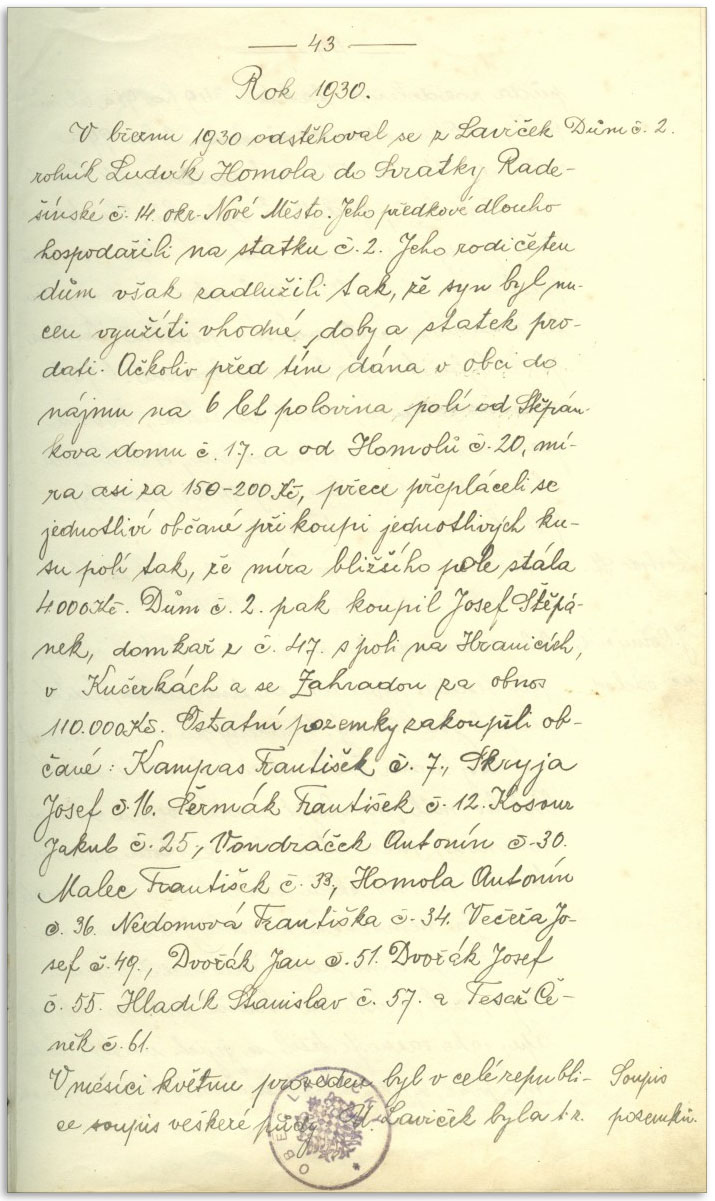 — 43 —
Rok 1930.
V březnu 1930 odstěhoval se z Laviček Dům č. 2.
rolník Ludvík Homola do Svratky Rade-
šínské č. 14 okr. Nové Město. Jeho předkové dlouho
hospodařili na statku č. 2. Jeho rodiče ten
dům však zadlužili tak, že syn byl nu-
cen využíti vhodné doby a statek pro-
dati. Ačkoliv před tím dána v obci do
nájmu na 6 let polovina polí od Štěpán-
kova domu č. 17. a od Homolů č. 20, mí-
ra asi za 150-200 Kč, přece přepláceli se
jednotliví občané při koupi jednotlivých ku-
su polí tak, že míra bližšího pole stála
4000 Kč. Dům č. 2. pak koupil Josef Štěpá-
nek, domkař z č. 47. s poli na Hranicích,
v Kučerkách a se Zahradou za obnos
110.000 Kč. Ostatní pozemky zakoupili ob-
čané: Kampas František č. 7., Skryja
Josef č. 16. Čermák František č. 12. Kosour
Jakub č. 25., Vondráček Antonín č. 30.
Malec František č. 33, Homola Antonín
č. 36. Nedomová Františka č. 34. Večeřa Jo-
sef č. 49., Dvořák Jan č. 51. Dvořák Josef
č. 55. Hladík Stanislav č. 57. a Tesař Če-
něk č. 61.
V měsíci květnu proveden byl v celé republi- Soupis
ce soupis veškeré půdy. U Laviček byla t.r. pozemků.
OBEC